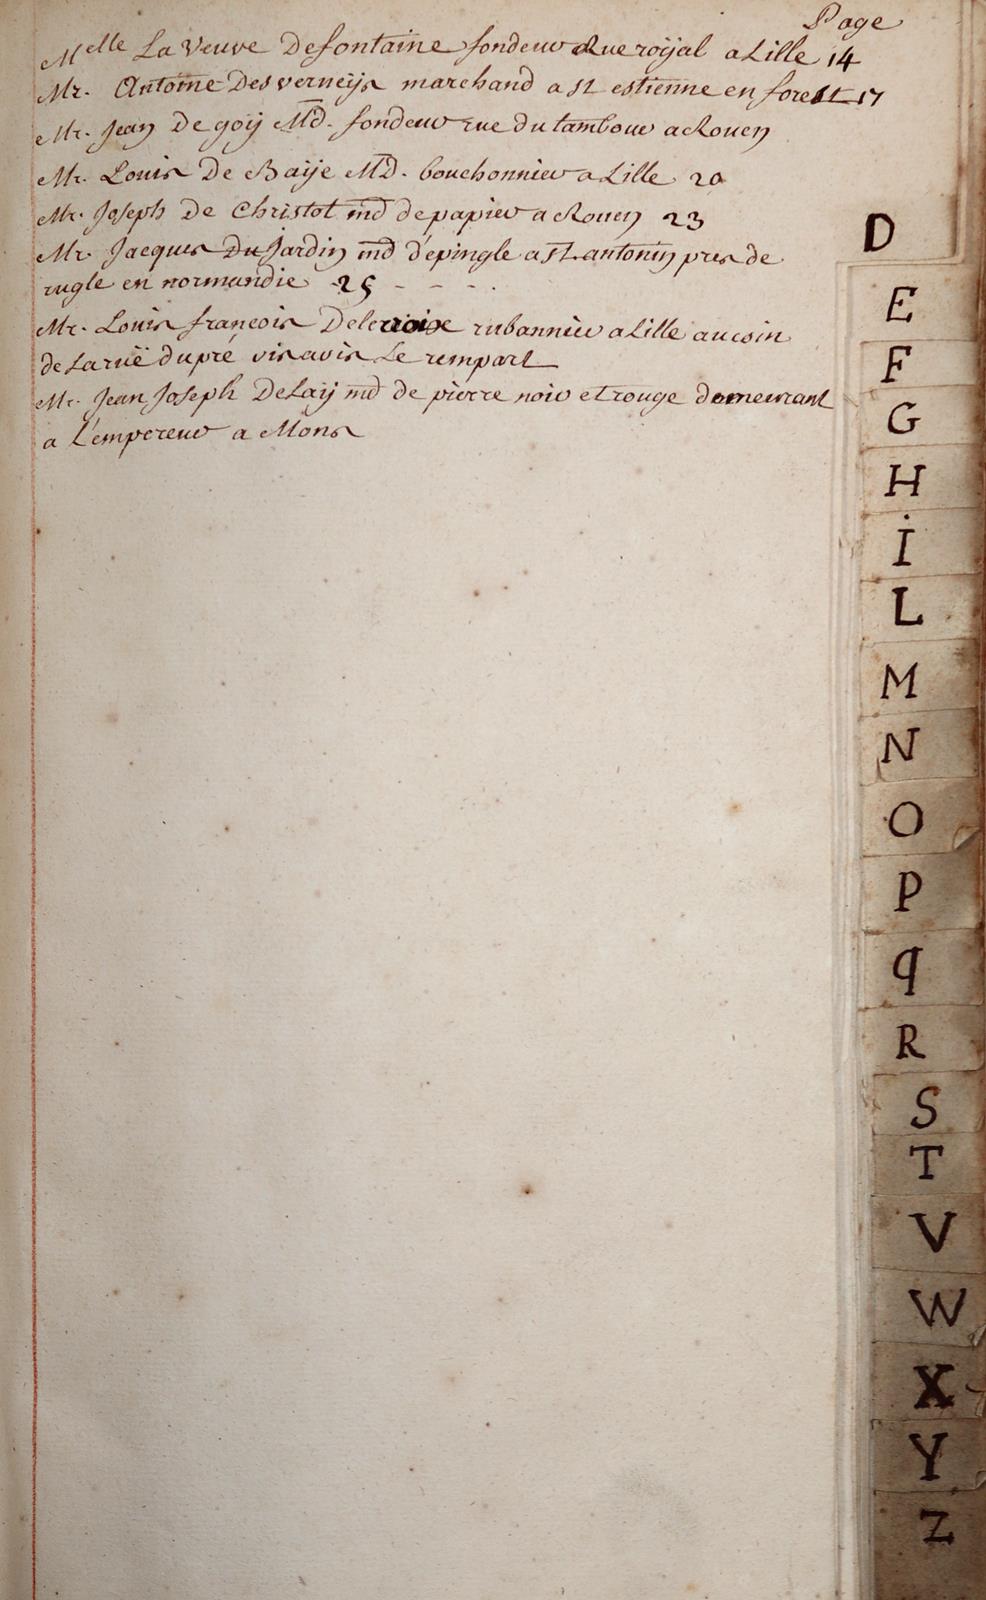 Page
Melle La Veuve Defontaine fondeur Rue roÿal a Lille 14
Mr. Antoine Desverneÿs marchand a st estienne en forest 17
Mr. Jean De goÿ Md. fondeur rue du tambour a Rouen
Mr. Louis De Baÿe MD. bouchonnier a Lille 20
Mr. Joseph De Christot md de papier a Rouen 23
Mr. Jacques DuJardin md d'epingle a st. antonin pres de
rugle en normandie 25 - - - .
Mr. Louis francois Delecroix rubannier a Lille au coin
de La ruë du pré vis avis Le rempart
Mr. Jean Joseph DeLaÿ md de pierre noir et rouge demeurant
a L'empereur a Mons
D
E
F
G
H
I
L
M
N
O
P
q
R
S
T
V
W
X
Y
Z